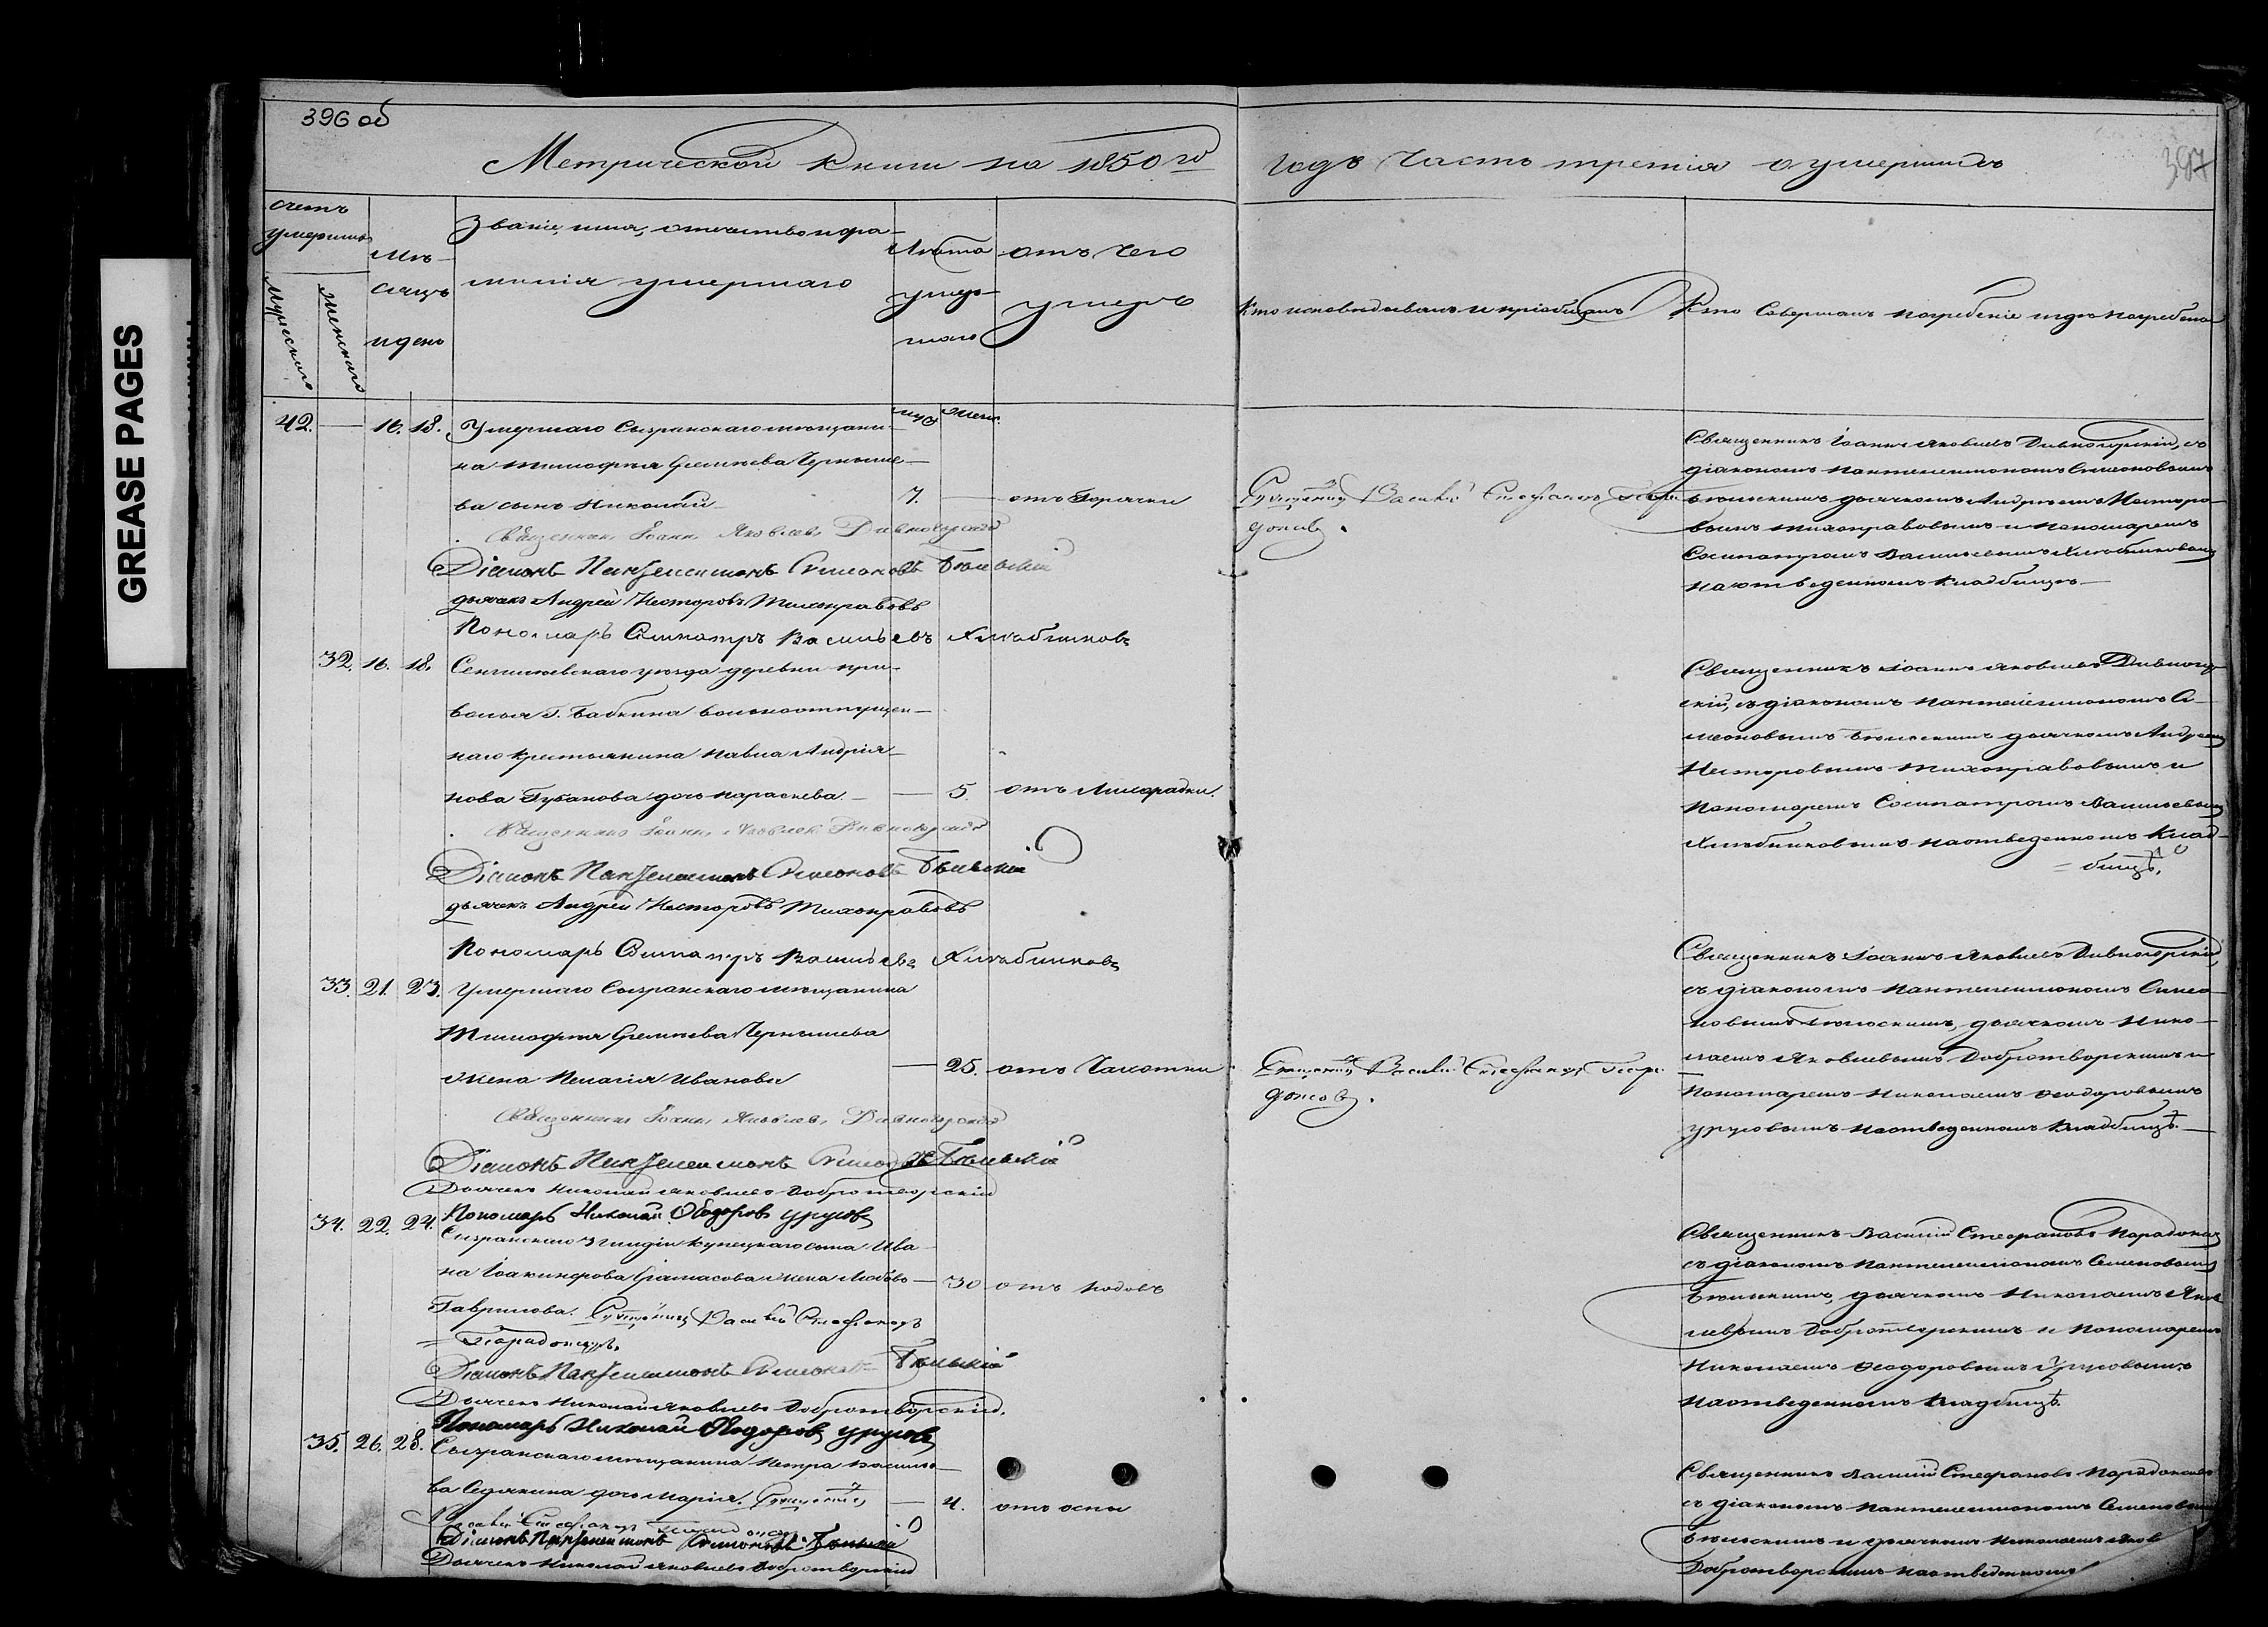 GREASE PAGES
396 об
Метрической книги на 1850го
годъ часть третія о умершихъ
397
счетъ
умершихъ
Мужескаго
Женскаго
Мѣ-
сяцъ
и день
Званіе, имя, отчество и фа-
милія умершаго
Лѣта
умер-
шаго
отъ чего
умеръ
Кто исповѣдывалъ и пріобщалъ
Кто совершалъ погребеніе и гдѣ погребены
муж жен.
42. — 16. 18. Умершаго Сызранскаго мѣщани-
на Тимофея Еремѣева Черныше-
ва сынъ Николай 7. — отъ Горячки
Священникъ Іоаннъ Яковлевъ Дивногорскій
Діаконъ Пантелеимонъ Симеоновъ Бѣльскій
дьячекъ Андрей Несторовъ Тихонравовъ
Пономарь Сосипатръ Васильевъ Хлѣбниковъ
Священникъ Василій Стефановъ Пара-
доксовъ.
Священникъ Іоаннъ Яковлевъ Дивногорскій, съ
діакономъ Пантелеимономъ Симеоновымъ
Бѣльскимъ дьячкомъ Андреемъ Несторо-
вымъ Тихонравовымъ и пономаремъ
Сосипатромъ Васильевымъ Хлѣбниковымъ
на отведенномъ кладбищѣ —
32. 16. 18. Сенгилѣевскаго уѣзда деревни При-
волья Г. Бабкина вольноотпущен-
наго крестьянина Павла Андрія-
нова Губанова дочь Параскева. — — 5. отъ Лихорадки.
Священникъ Іоаннъ Яковлевъ Дивногорскій
Діаконъ Пантелеимонъ Симеоновъ Бѣльскій
дьячекъ Андрей Несторовъ Тихонравовъ
Пономарь Сосипатръ Васильевъ Хлѣбниковъ
Священникъ Іоаннъ Яковлевъ Дивногор-
скій, съ діакономъ Пантелеимономъ Си-
меоновымъ Бѣльскимъ дьячкомъ Андреемъ
Несторовымъ Тихонравовымъ и
Пономаремъ Сосипатромъ Васильевымъ
Хлѣбниковымъ на отведенномъ клад-
= бищѣ.
33. 21. 23. Умершаго Сызранскаго мѣщанина
Тимофея Еремѣева Чернышева
жена Пелагія Иванова — 25. отъ Чахотки
Священникъ Іоаннъ Яковлевъ Дивногорскій
Діаконъ Пантелеимонъ Симеоновъ Бѣльскій
Дьячекъ Николай Яковлевъ Добротворскій
Пономарь Николай Ѳеодоровъ Урусовъ
Священникъ Василій Стефановъ Пара-
доксовъ.
Священникъ Іоаннъ Яковлевъ Дивногорскій,
съ діакономъ Пантелеимономъ Симео-
новымъ Бѣльскимъ, дьячкомъ Нико-
лаемъ Яковлевымъ Добротворскимъ и
Пономаремъ Николаемъ Ѳеодоровымъ
Урусовымъ на отведенномъ кладбищѣ. —
34. 22. 24. Сызранскаго 3 гильдіи купецкаго сына Ива-
на Іоакинфова жена Любовь — 30 отъ родовъ
Гаврилова. Священникъ Василій Стефановъ
= Парадоксовъ.
Діаконъ Пантелеимонъ Симеоновъ Бѣльскій
Дьячекъ Николай Яковлевъ Добротворскій.
Пономарь Николай Ѳеодоровъ Урусовъ
Священникъ Василій Стефановъ Парадоксовъ
съ діакономъ Пантелеимономъ Семеновымъ
Бѣльскимъ, дьячкомъ Николаемъ Яков-
левымъ Добротворскимъ и Пономаремъ
Николаемъ Ѳеодоровымъ Урусовымъ
на отведенномъ кладбищѣ.
35. 26. 28. Сызранскаго мѣщанина Петра Василье-
ва дочь Марія. Священникъ — 4. отъ оспы
Василій Стефановъ Парадоксовъ
Діаконъ Пантелеимонъ Симеоновъ Бѣльскій
Дьячекъ Николай Яковлевъ Добротворскій
Священникъ Василій Стефановъ Парадоксовъ
съ діакономъ Пантелеимономъ Семеновымъ
Бѣльскимъ и дьячкомъ Николаемъ Яков
Добротворскимъ на отведенномъ